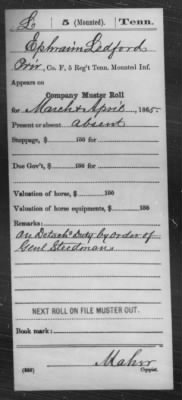 L. 5 (Mounted). Tenn.
Ephraim Ledford
Priv., Co. F, 5 Reg't Tenn. Mounted Inf.
Appears on
Company Muster Roll
for March & April, 1865.
Present or absent absent
Stoppage, $ 100 for
Due Gov't, $ 100 for
Valuation of horse, $ 100
Valuation of horse equipments, $ 100
Remarks:
On Detach'd Duty by order of
Genl Steedman
NEXT ROLL ON FILE MUSTER OUT.
Book mark:
Mahir
(358) Copyist.